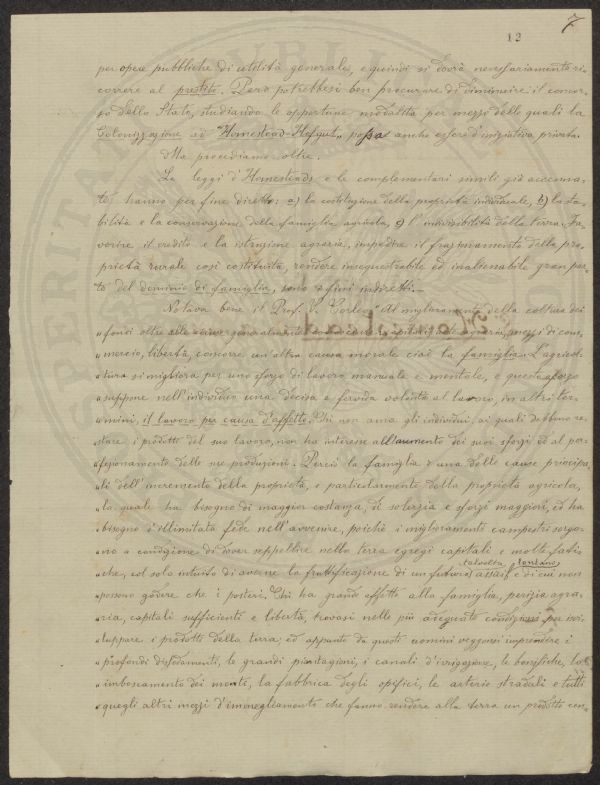 12
7
per opere pubbliche di utilità generale, e quindi si dovrà necessariamente ri-
correre al prestito. Però potrebbesi ben procurare di diminuire il concor-
so dello Stato, studiando le opportune modalità per mezzo delle quali la
Colonizzazione ad "Homestead-Hofgut" possa anche essere d'iniziativa privata.
Ma procediamo oltre.
Le leggi d'Homesteads e le complementari simili già accenna-
te, hanno per fine diretto: a) la costituzione della proprietà individuale, b) la sta-
bilità e la conservazione della famiglia agricola, c) l'indivisibilità della terra. Fa-
vorire il credito e la istruzione agraria, impedire il frazionamento della pro-
prietà rurale così costituita, rendere insequestrabile ed inalienabile gran par-
te del dominio di famiglia, sono i fini indiretti.—
Notava bene il Prof. V. "Al miglioramento della coltura dei
"fondi oltre alle cause generali capitali mezzi di com-
"mercio, libertà, concorre un'altra causa morale cioè la famiglia. L'agricol-
"tura si migliora per uno sforzo di lavoro manuale e mentale, e questo sforzo
"suppone nell'individuo una decisa e fervida volontà al lavoro, in altri ter-
"mini, il lavoro per causa d'affetto. Chi non ama gli individui, ai quali debbono re-
"stare i prodotti del suo lavoro, non ha interesse all'aumento dei suoi sforzi ed al per-
"fezionamento delle sue produzioni. Perciò la famiglia è una delle cause principa-
"li dell'incremento della proprietà, e particolarmente della proprietà agricola,
"la quale ha bisogno di maggior costanza, di solerzia e sforzi maggiori, ed ha
"bisogno d'illimitata fede nell'avvenire, poichè i miglioramenti campestri sorgo-
"no a condizione di dover seppellire nella terra egregi capitali e molte fati-
"che, col solo intuito di averne la fruttificazione di un futuro talvolta assai lontano, e di cui non
"possono godere che i posteri. Chi ha grande affetto alla famiglia, perizia agra-
"ria, capitali sufficienti e libertà, trovasi nelle più adeguate condizioni per svi-
"luppare i prodotti della terra; ed appunto da questi uomini veggonsi imprendere i
"profondi dissodamenti, le grandi piantagioni, i canali d'irrigazione, le bonifiche, lo
"imboscamento dei monti, la fabbrica degli opifici, le arterie stradali e tutti
"quegli altri mezzi d'immegliamento che fanno rendere alla terra un prodotto cen-